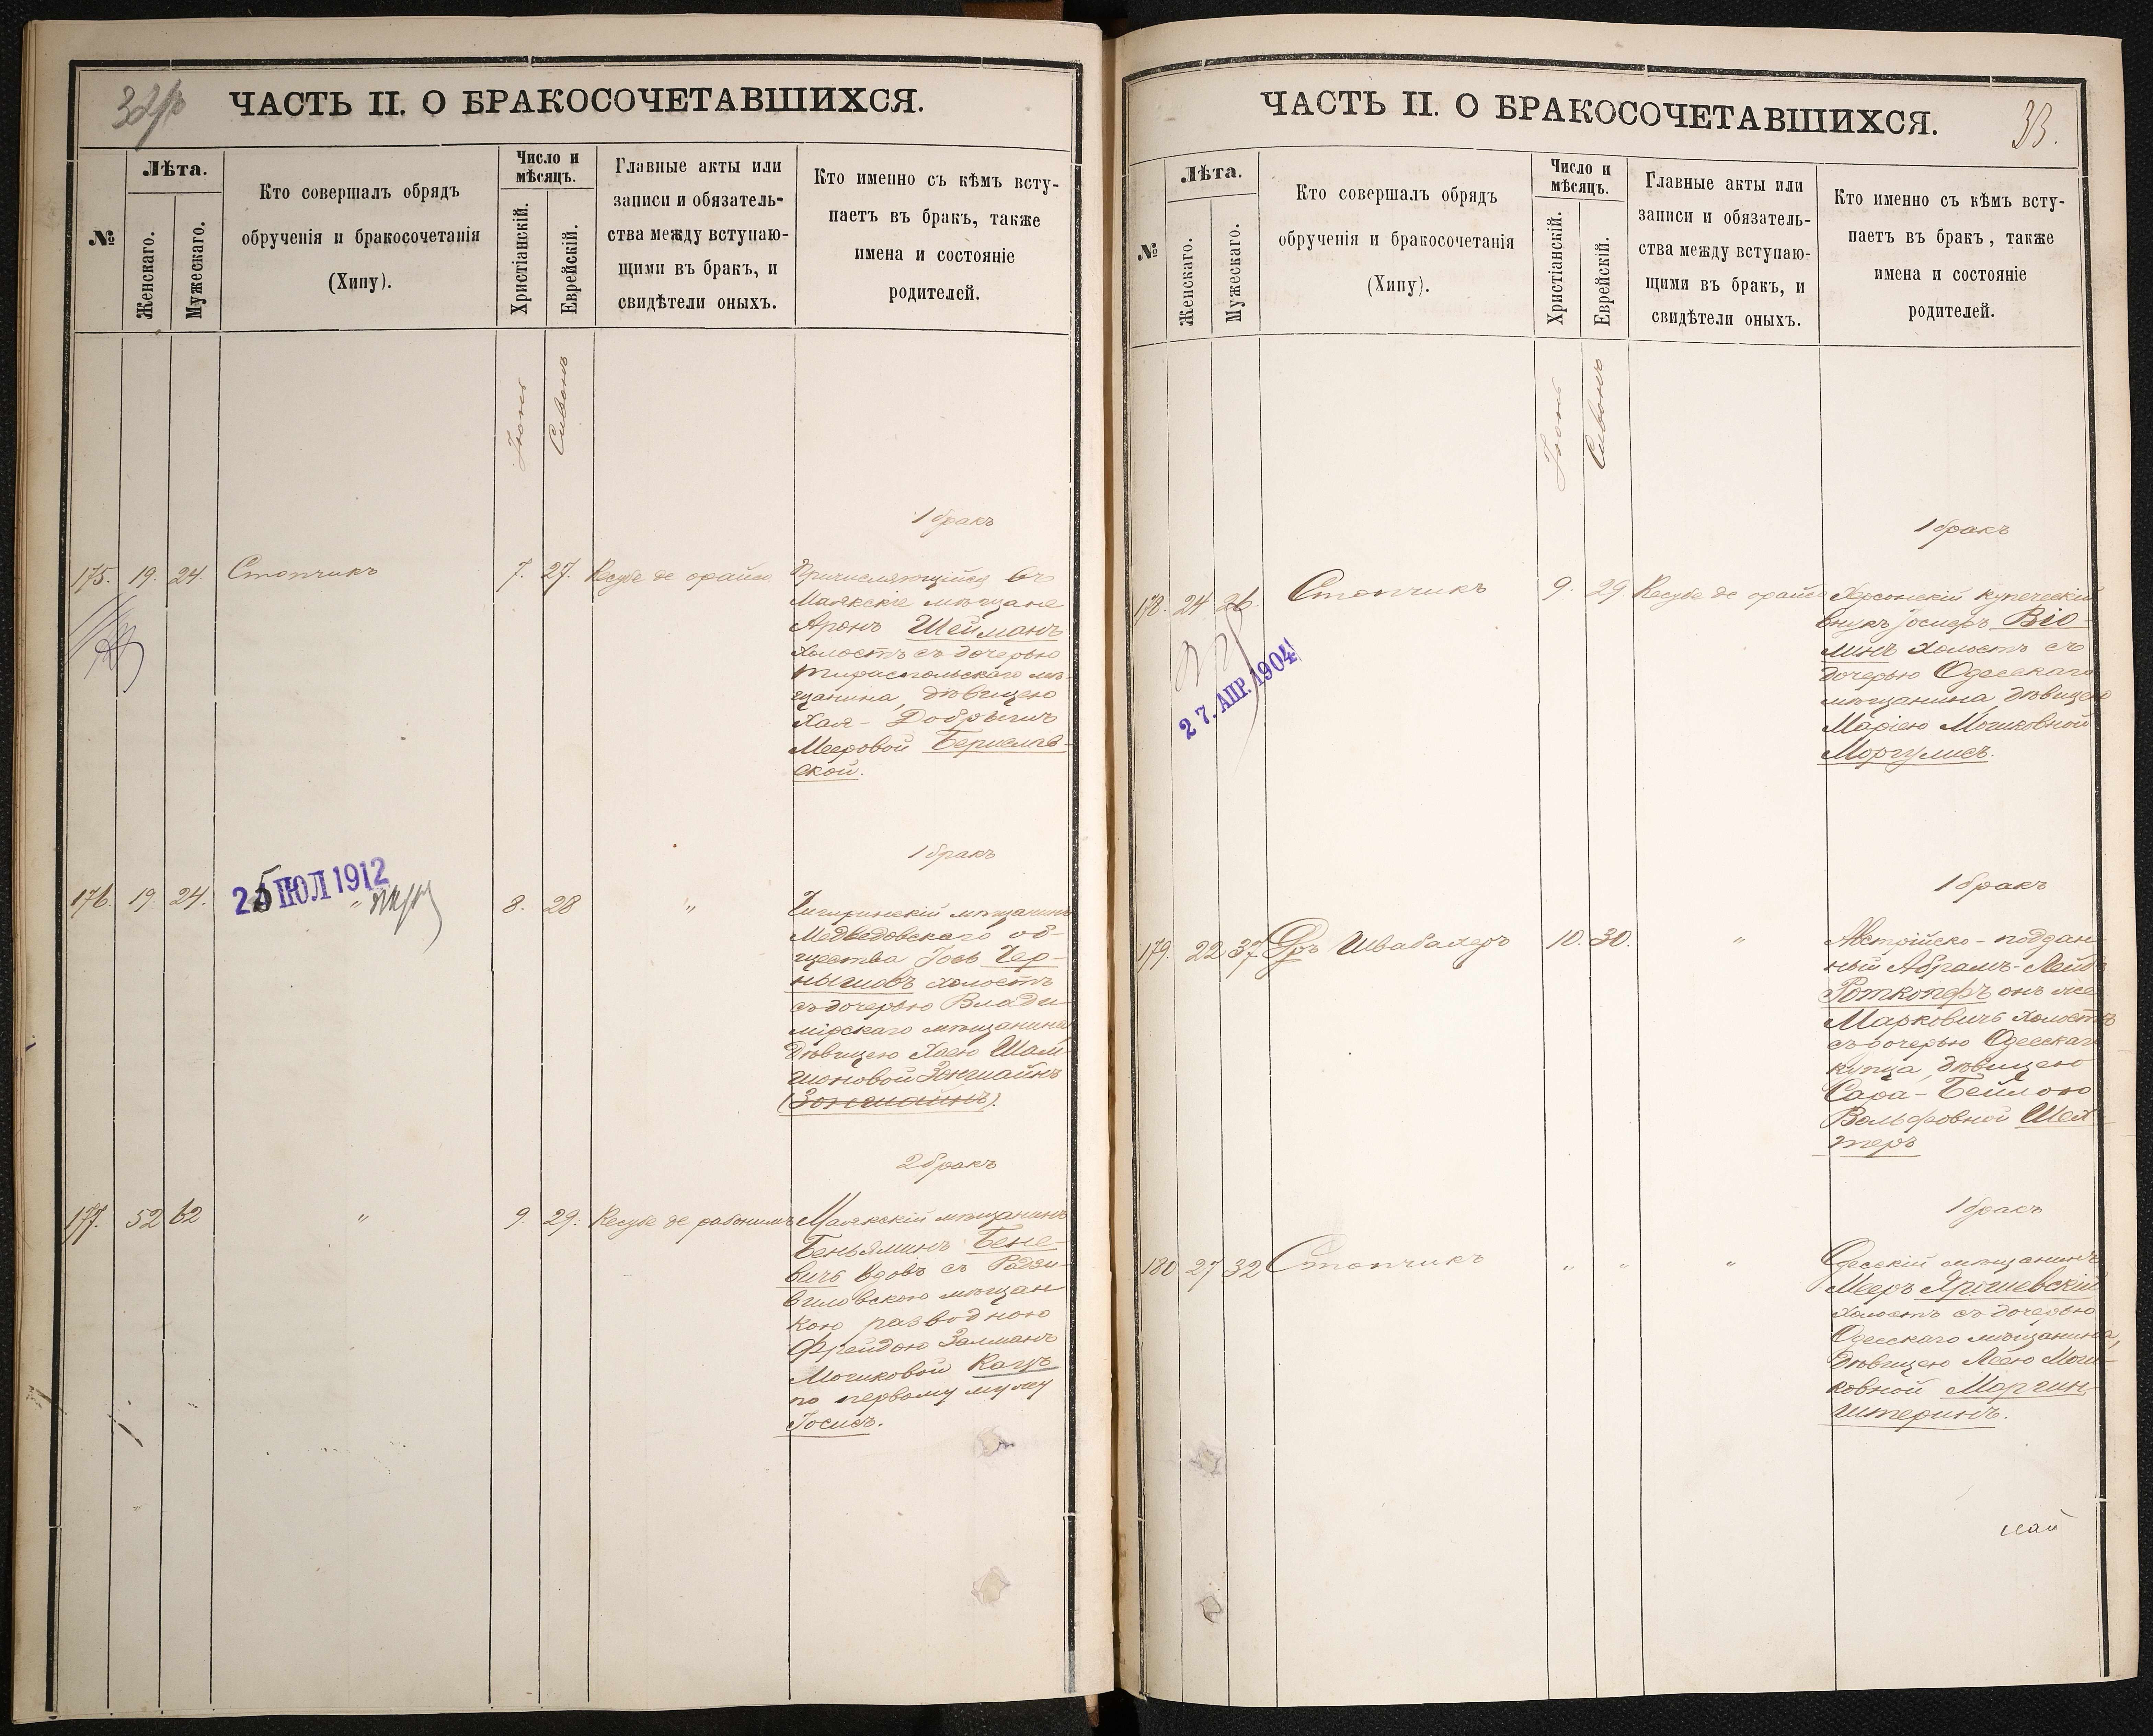 ЧАСТЬ II. О БРАКОСОЧЕТАВШИХСЯ.
№
Лѣта.
Женскаго.
Мужескаго.
Кто совершалъ обрядъ
обрученія и бракосочетанія
(Хипу).
Число и
мѣсяцъ.
Христіанскій.
Еврейскій.
Главные акты или
записи и обязатель-
ства между вступаю-
щими въ бракъ, и
свидѣтели оныхъ.
Кто именно съ кѣмъ всту-
паетъ въ бракъ, также
имена и состояніе
родителей.
Іюнь
Сивонъ
1 бракъ
175. 19. 24. Стопчикъ 7. 27. Кесубе де орайсо
Причисляющійся въ
Маякскіе мѣщане
Аронъ Шейманъ
холостъ съ дочерью
тираспольскаго мѣ-
щанина, дѣвицею
Хая-Добрышъ
Мееровой Берислав-
ской.
1 бракъ
176. 19. 24. " 8. 28 "
25 ІЮЛ 1912
Чигиринскій мѣщанинъ
Медведовскаго об-
щества Іось Чер-
нышовъ холостъ
съ дочерью Влади
мірскаго мѣщанина,
дѣвицею Хаею Шам-
шоновой Зоншайнъ
(Зоншайнъ).
2 бракъ
177. 52 62 " 9. 29. Кесубе де рабонимъ
Маякскій мѣщанинъ
Беньяминъ Бене-
вичъ вдовъ съ Радзи-
виловскою мѣщан
кою разводною
Фрейдою Залманъ
Мошковой Кацъ
по первому мужу
Госисъ.
ЧАСТЬ II. О БРАКОСОЧЕТАВШИХСЯ.
33.
№
Лѣта.
Женскаго.
Мужескаго.
Кто совершалъ обрядъ
обрученія и бракосочетанія
(Хипу).
Число и
мѣсяцъ.
Христіанскій.
Еврейскій.
Главные акты или
записи и обязатель-
ства между вступаю-
щими въ бракъ, и
свидѣтели оныхъ.
Кто именно съ кѣмъ всту-
паетъ въ бракъ, также
имена и состояніе
родителей.
Іюнь
Сивонъ
1 бракъ
178. 24 26. Стопчикъ 9. 29 Кесубе де орайсо
27. АПР. 1904
Херсонскій купеческій
внукъ Іосифъ Віо-
линъ холостъ съ
дочерью Одесскаго
мѣщанина, дѣвицею
Маріею Мошковной
Моргулисъ.
1 бракъ
179. 22 37. Дръ Швабахеръ 10. 30. "
Австрійско-поддан
ный Абрамъ-Лейбъ
Роткопфъ онъ же
Марковичъ холостъ
съ дочерью Одесскаго
купца, дѣвицею
Сара-Бейлою
Вольфовной Шех
теръ
1 бракъ
180 27 32 Стопчикъ " " "
Одесскій мѣщанинъ
Мееръ Ярошевскій
холостъ съ дочерью
Одесскаго мѣщанина,
дѣвицею Леею Мош-
ковной Моргин-
штернъ.